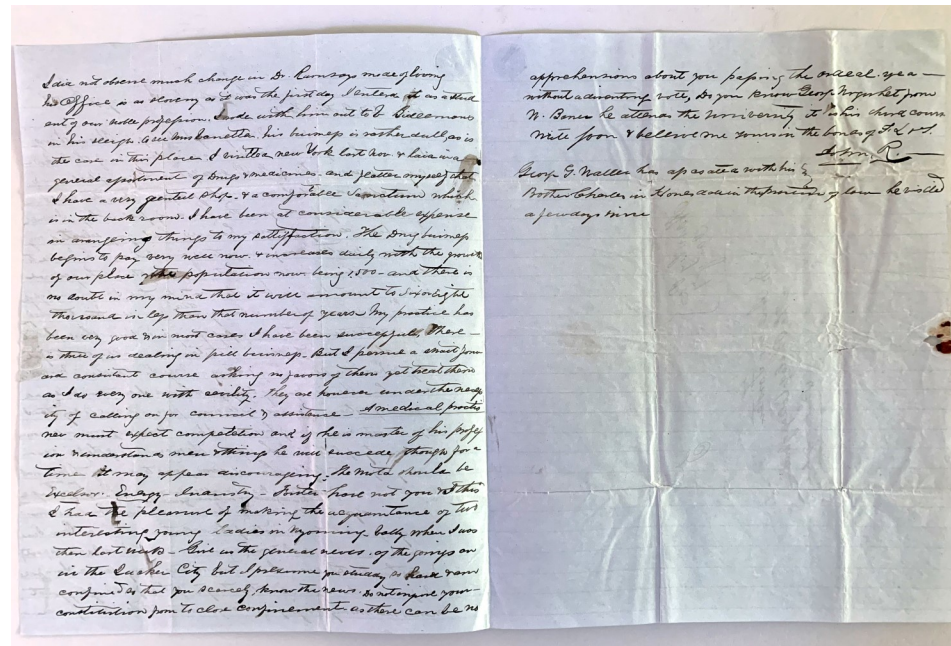 I did not observe much change in Dr. Ramsays mode of living
his Office is as slovenly as it was the first day I entered it as a stud
ent of our noble profession. I rode with him out to
in his sleigh. his business is rather dull, as is
the case in this place. I visited New York last Nov & have in a
general assortment of Drugs & medicines. and flatter myself that
I have a very genteel Shop. & a comfortable Sanctum which
is in the back room. I have been at considerable expense
in arrangeing things to my sattisfaction. The Drug business
begins to pay very well now. & increases daily with the growth
of our place the population now being 1,500 - and there is
no doubt in my mind that it will amount to Six or Eight
thousand in less than that number of years. My practice has
been very good & in most cases I have been successfull. There
is three of us dealing in pill business. But I pursue a strait forw
ard consistent course asking no favors of them yet treat them
as I do every one with civility. they are however under the necess
ity of calling on for council & assistance - A medical practitio
ner must expect competation and if he is master of his profess
ion & understands men & things he will succede though for a
time it may appear discouraging. The Moto should be
Excelsior. Energy - Industry - have not you & I this
I had the pleasure of making the acquaintance of two
interesting young ladies in Wyoming Vally when I was
there last week - Give us the general news. of the goings on
in the Quaker City but I presume you study as hard & are
confined so that you scarcely know the news. Do not impare your
constitution from to close confinement as there can be no
apprehensions about you passing the ordeal. yea -
without a dissenting vote, Do you know George from
he attends the University it is his third course
Write soon & believe me yours in the bonds of F. L & T.
John R
George G. Waller has assosiated with his
Brother Charles in Honesdale in the profession of law he visited
a few days since